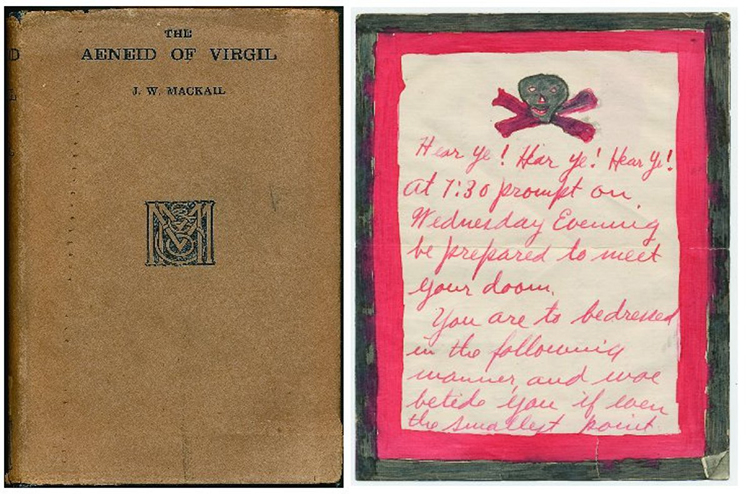 THE
AENEID OF VIRGIL
J. W. MACKAIL
Hear ye! Hear ye! Hear Ye!
at 7:30 prompt on,
Wednesday Evening
be prepared to meet
your doom.
You are to be dressed
in the following
manner, and woe
betide you if even
the smallest point